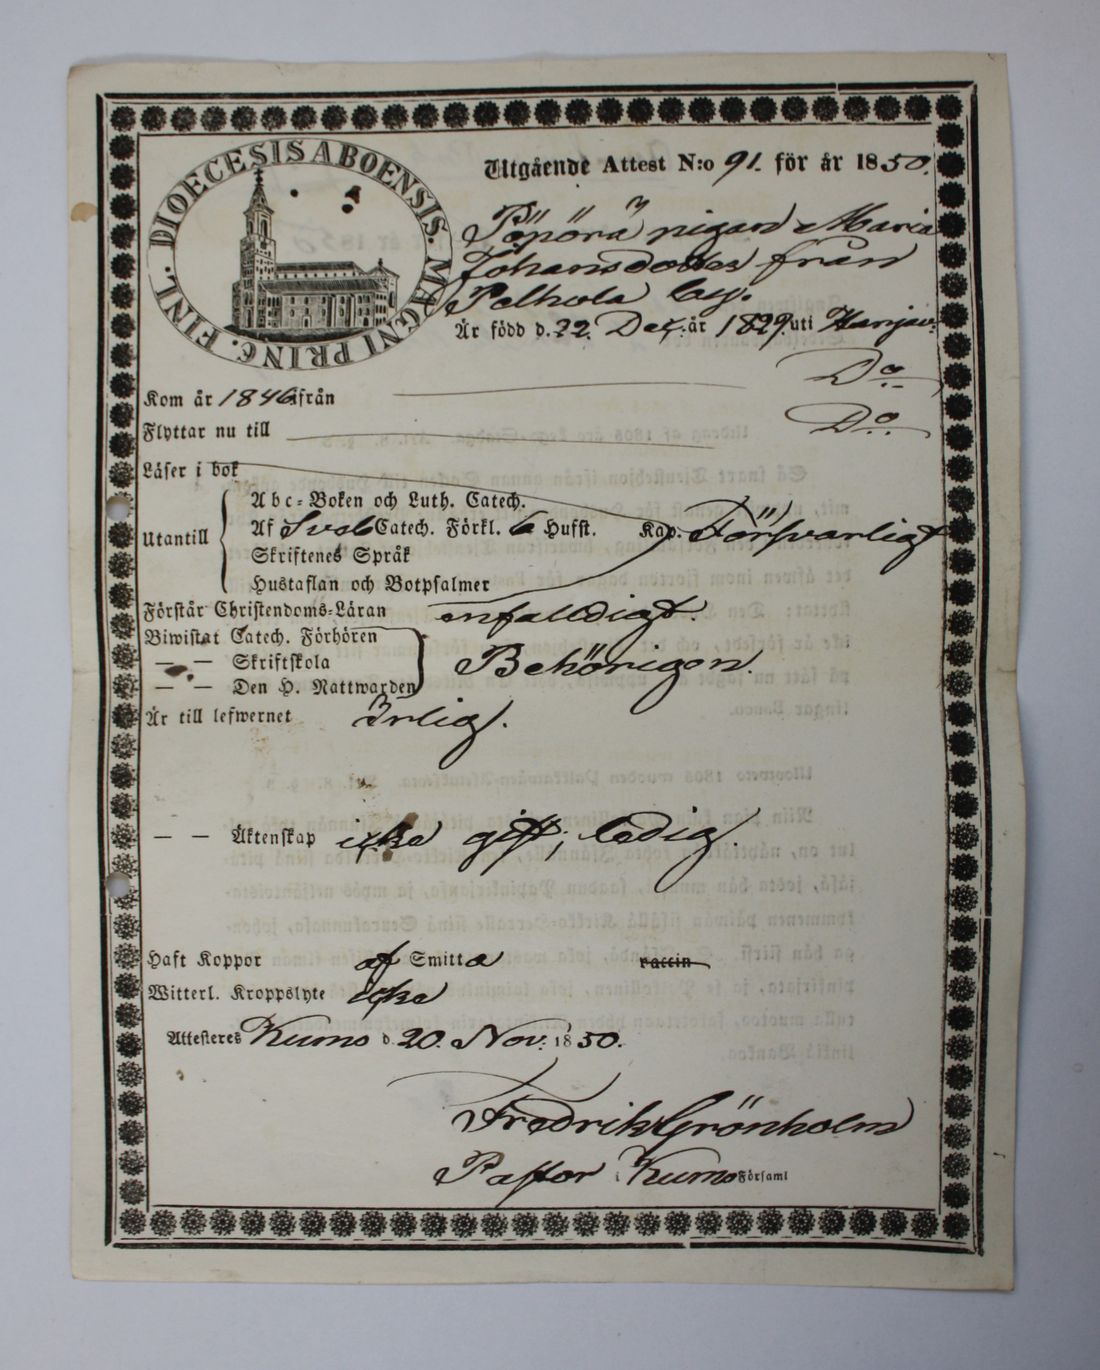 DIOECESIS ABOENSIS. MAGNI PRINC. FINL.
Utgående Attest N:o 91. för år 1850.
Pöpörä pigan Maria
Johansdotter från
Pelhola by.
Är född d. 22. Dec. år 1829. uti Harjav:
Kom år 1846 ifrån Do
Flyttar nu till Do
Läser i bok
Utantill
Abc-Boken och Luth. Catech.
Af Sveb Catech. Förkl. 6 Hufst. Kap. Försvarligt
Skriftenes Språk
Hustaflan och Botpsalmer
Förstår Christendoms-Läran enfalldigt.
Biwistat Catech. Förhören
— — Skriftskola Behörigen.
— — Den H. Nattwarden
Är till lefwernet Ärlig.
— — Äktenskap icke gift, ledig.
Haft Koppor af Smitta vaccin
Witterl. Kroppslyte icke
Attesteres Kumo d. 20. Nov: 1850.
Fredrik Grönholm
Pastor i Kumo Församl